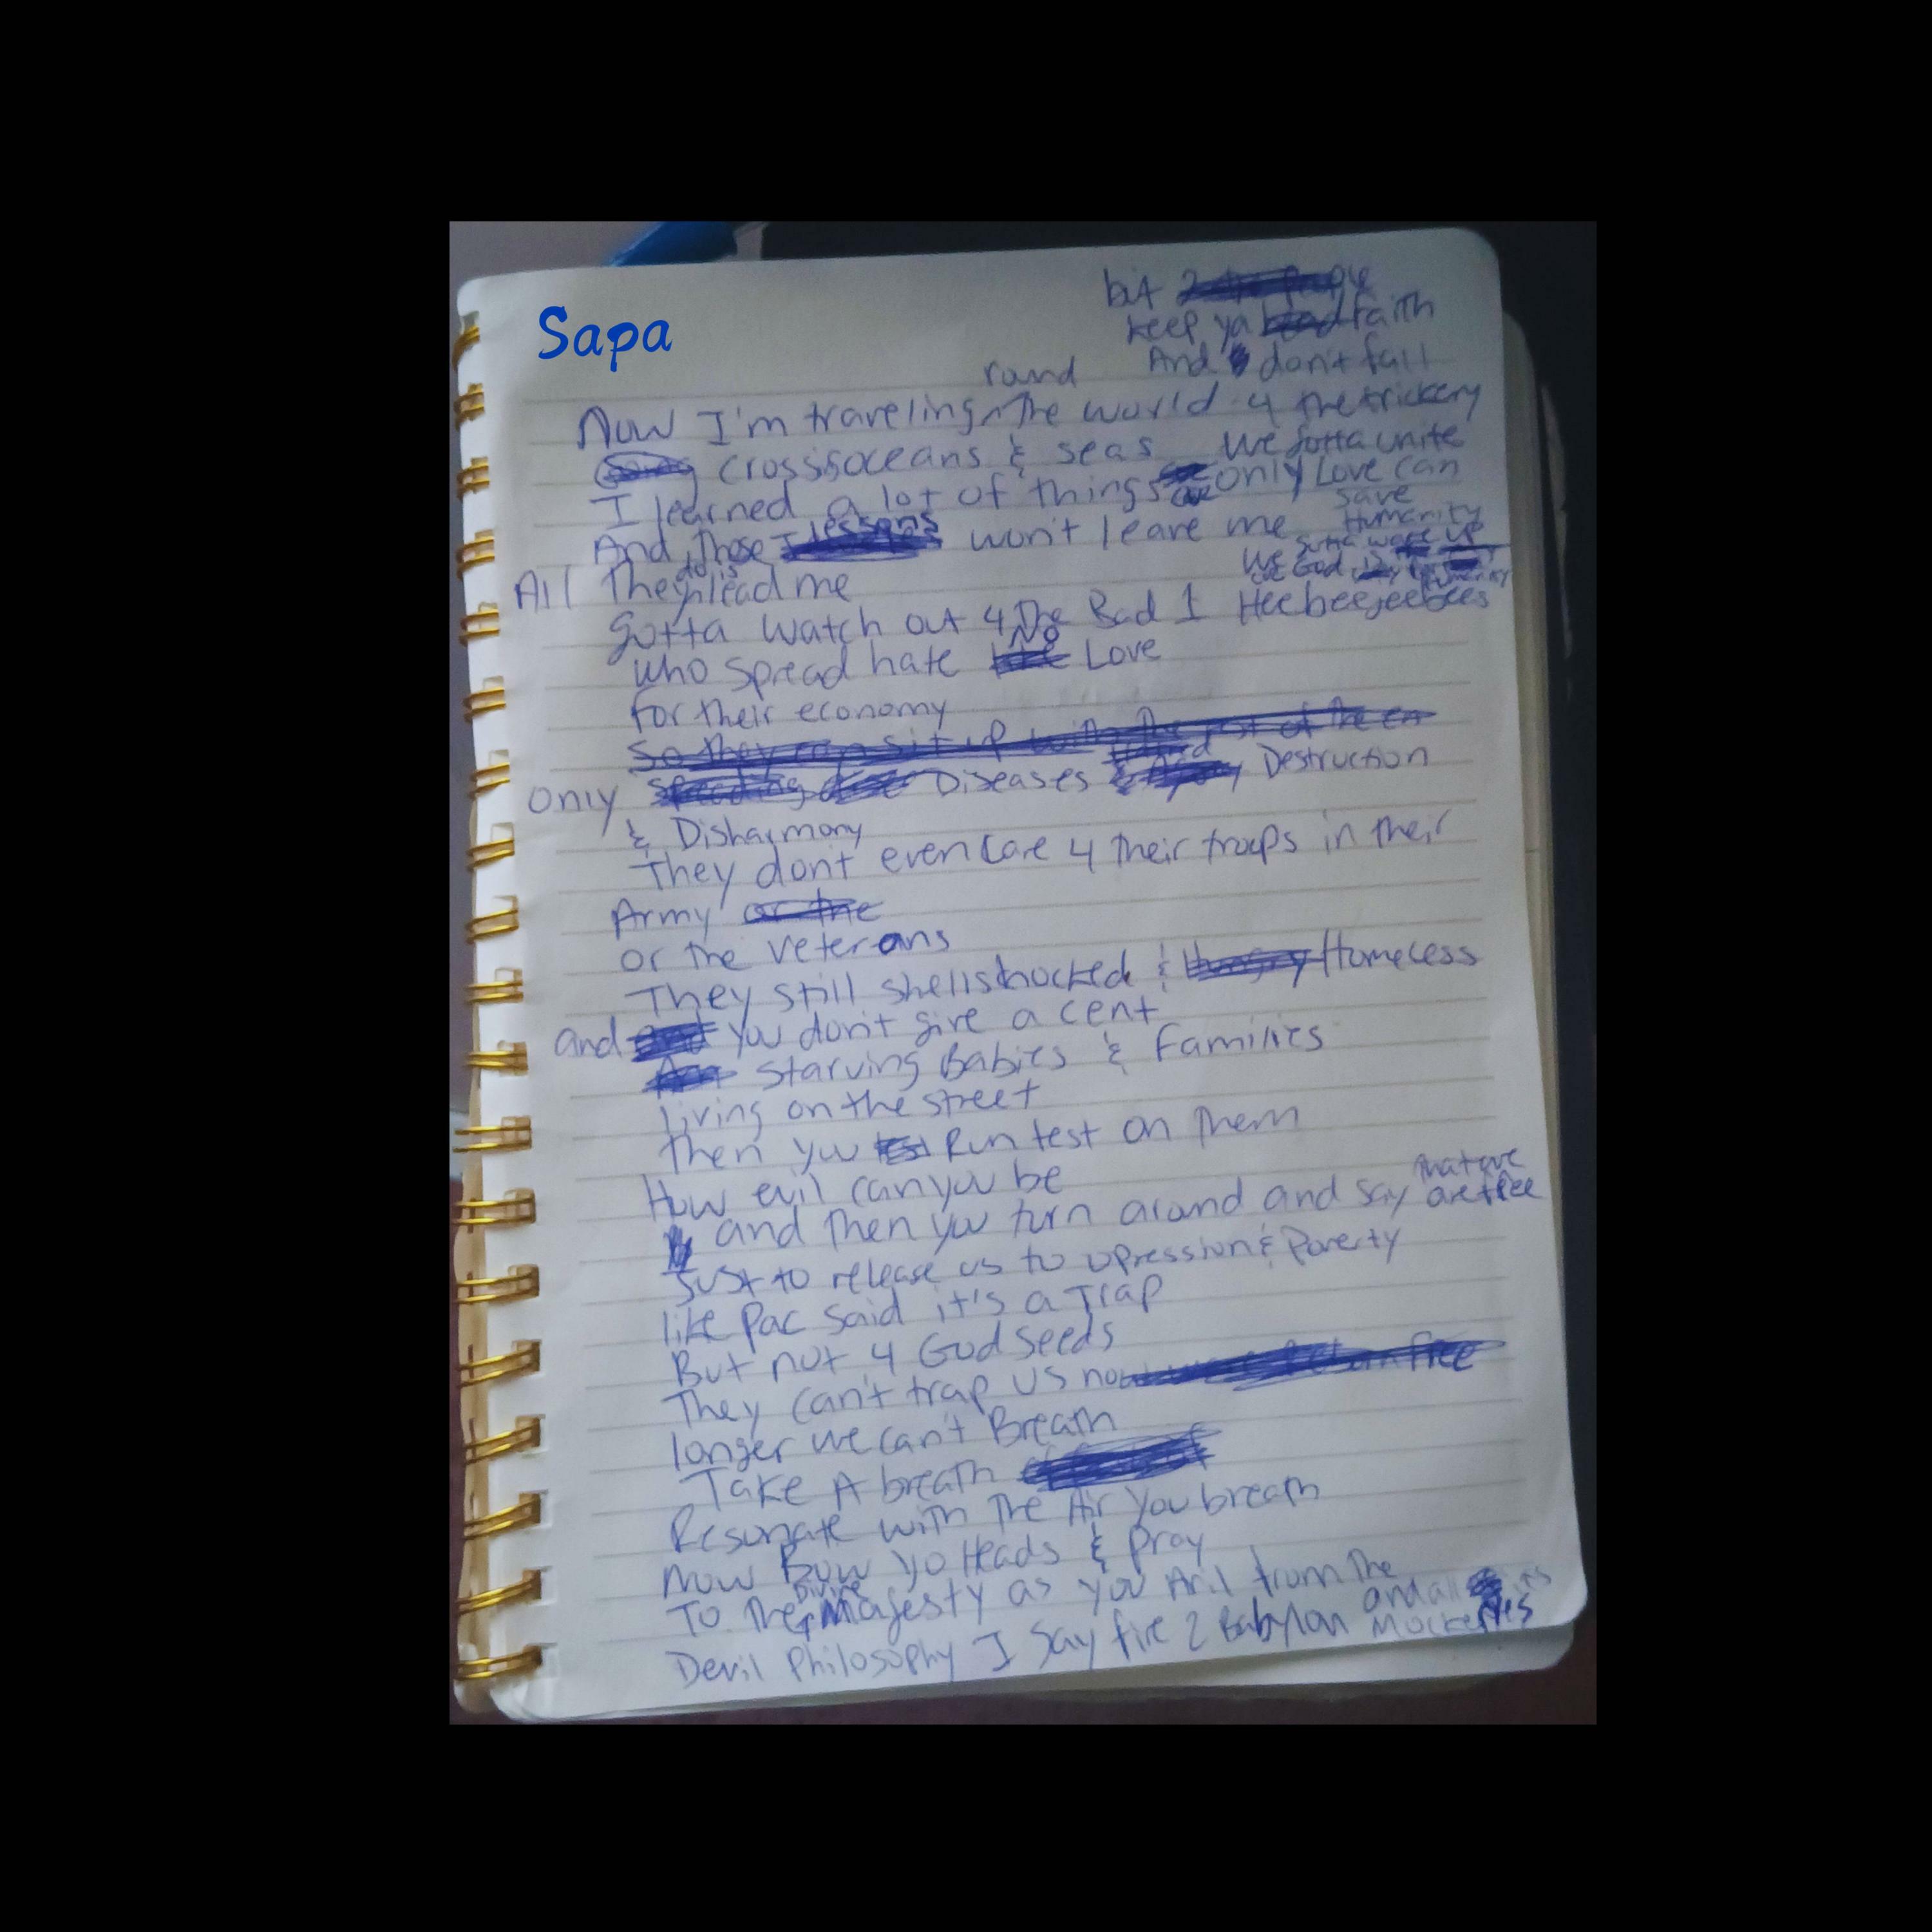 Sapa
but
keep ya faith
And don't fall
4 the trickery
We gotta unite
only Love can
save
Humanity
We gotta wake up
round
Now I'm traveling ^ The world
cross oceans & seas
I learned a lot of things
And Those lessons won't leave me
All They do is lead me
Gotta watch out 4 The Bad 1 Heebeejeebees
who spread hate No Love
for their economy
only Diseases & Destruction
& Disharmony
They don't even care 4 their troops in their
Army
or the veterans
They still shellshocked & Homeless
and you don't give a cent
Starving Babies & Families
living on the street
Then you Run test on Them
How evil can you be
and Then you turn around and say that we are free
Just to release us to opression & Poverty
like Pac said it's a Trap
But not 4 God seeds
They can't trap us no
longer we can't Breath
Take A breath
Resonate with The Air you breath
Now Bow yo Heads & pray
To The Divine Majesty as you from The
Devil Philosophy I say fire 2 Babylon and all its Mockeries